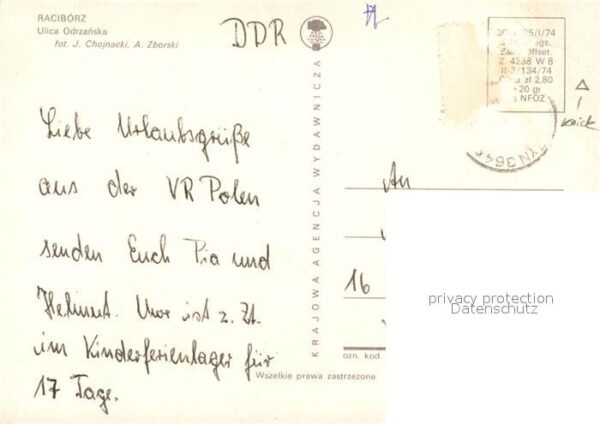 RACIBÓRZ
Ulica Odrzańska
fot. J. Chojnacki, A. Zborski
DDR
Liebe Urlaubsgrüße
aus der VR Polen
senden Euch Pia und
Helmut. Uwr ist z. Zt.
im Kinderferienlager für
17 Tage.
KRAJOWA AGENCJA WYDAWNICZA
Z. 4238 W 8
II-3/134/74
zł 2,80
+20 gr
NFOZ
Knick
An
16
ozn. kod
Wszelkie prawa zastrzeżone
privacy protection
Datenschutz